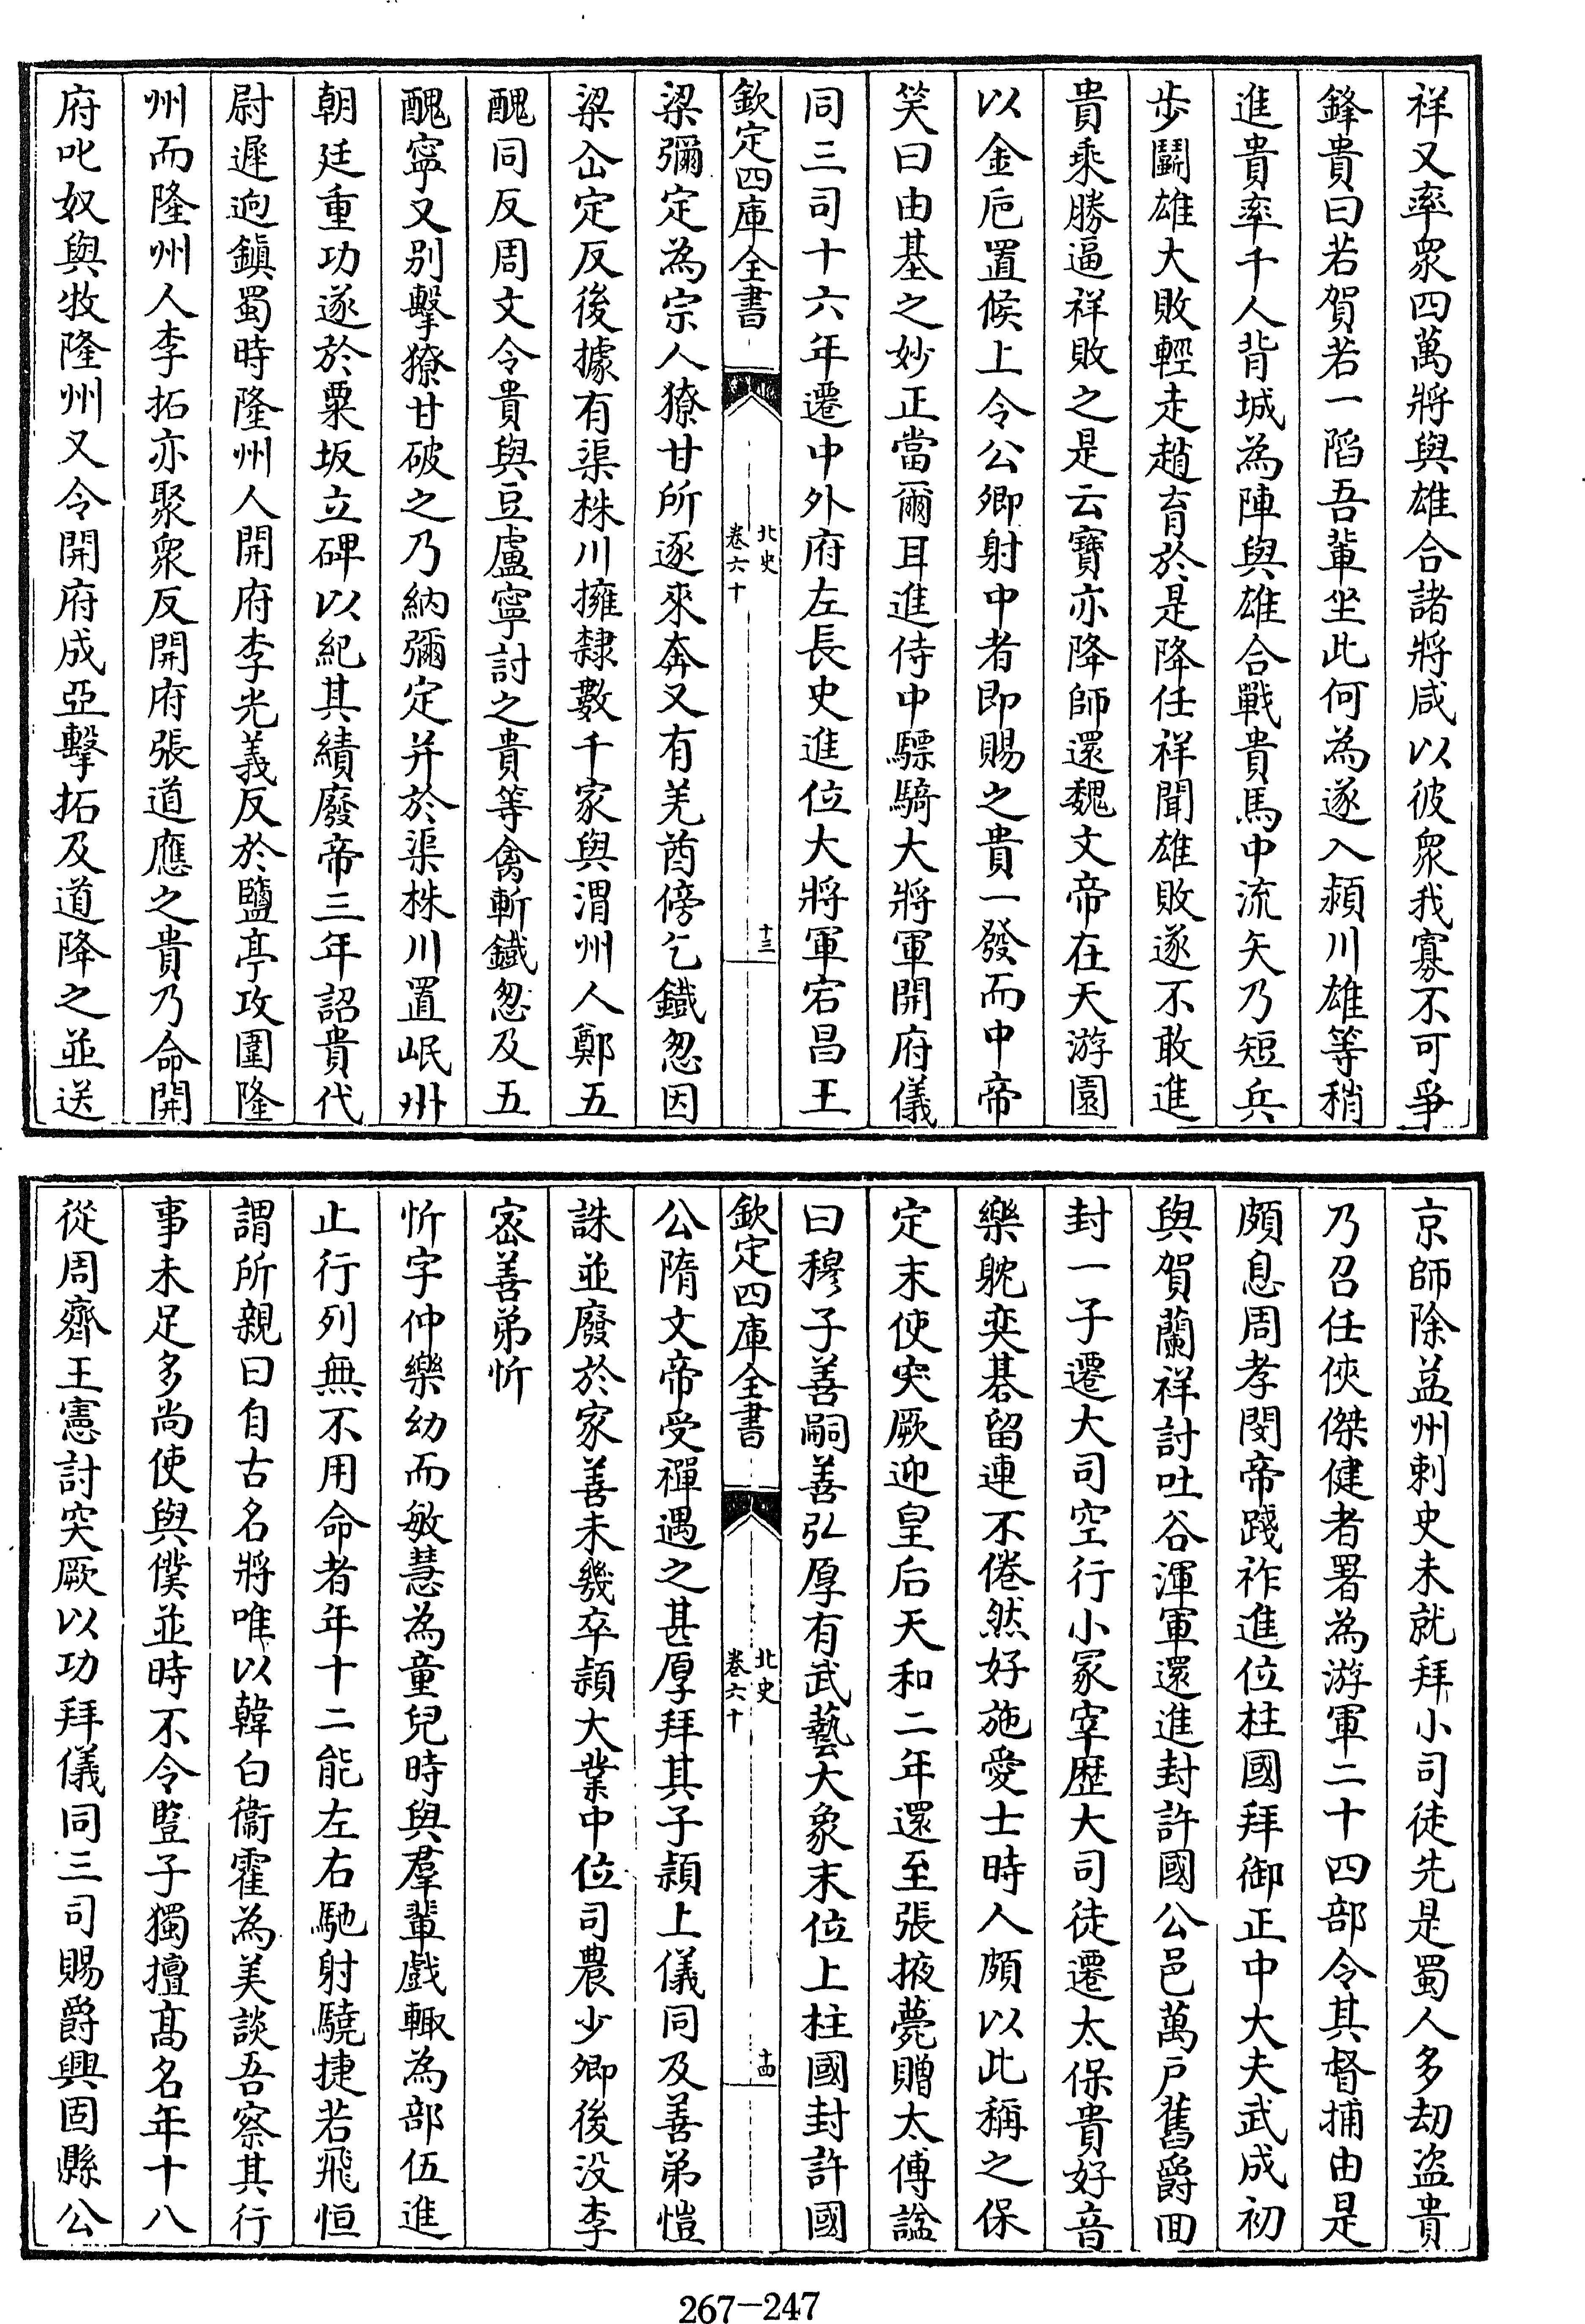 祥又率衆四萬將與雄合諸將咸以彼衆我寡不可爭
鋒貴曰若賀若一陷吾輩坐此何為遂入潁川雄等稍
進貴率千人背城為陣與雄合戰貴馬中流矢乃短兵
步鬭雄大敗輕走趙育於是降任祥聞雄敗遂不敢進
貴乘勝逼祥敗之是云寶亦降師還魏文帝在天游園
以金巵置候上令公卿射中者即賜之貴一發而中帝
笑曰由基之妙正當爾耳進侍中驃騎大將軍開府儀
同三司十六年遷中外府左長史進位大將軍宕昌王
欽定四庫全書
北史
卷六十
十三
梁彌定為宗人獠甘所逐來奔又有羌酋傍乞鐵怱因
梁仚定反後據有渠株川擁隸數千家與渭州人鄭五
醜同反周文令貴與豆盧寧討之貴等禽斬鐵怱及五
醜寧又别擊獠甘破之乃納彌定并於渠株川置岷州
朝廷重功遂於粟坂立碑以紀其績廢帝三年詔貴代
尉遲迥鎮蜀時隆州人開府李光義反於鹽亭攻圍隆
州而隆州人李拓亦聚衆反開府張道應之貴乃命開
府叱奴與牧隆州又令開府成亞擊拓及道降之並送
京師除益州刺史未就拜小司徒先是蜀人多劫盜貴
乃召任俠傑健者署為游軍二十四部令其督捕由是
頗息周孝閔帝踐祚進位柱國拜御正中大夫武成初
與賀蘭祥討吐谷渾軍還進封許國公邑萬戶舊爵回
封一子遷大司空行小冢宰歴大司徒遷太保貴好音
樂躭奕碁留連不倦然好施愛士時人頗以此稱之保
定末使突厥迎皇后天和二年還至張掖薨贈太傅諡
曰穆子善嗣善弘厚有武藝大象末位上柱國封許國
欽定四庫全書
北史
卷六十
十四
公隋文帝受禪遇之甚厚拜其子頴上儀同及善弟愷
誅並廢於家善未幾卒頴大業中位司農少卿後没李
宻善弟忻
忻字仲樂幼而敏慧為童兒時與羣輩戲輙為部伍進
止行列無不用命者年十二能左右馳射驍捷若飛恒
謂所親曰自古名將唯以韓白衞霍為美談吾察其行
事未足多尚使與僕並時不令竪子獨擅髙名年十八
從周齊王憲討突厥以功拜儀同三司賜爵興固縣公
267－247